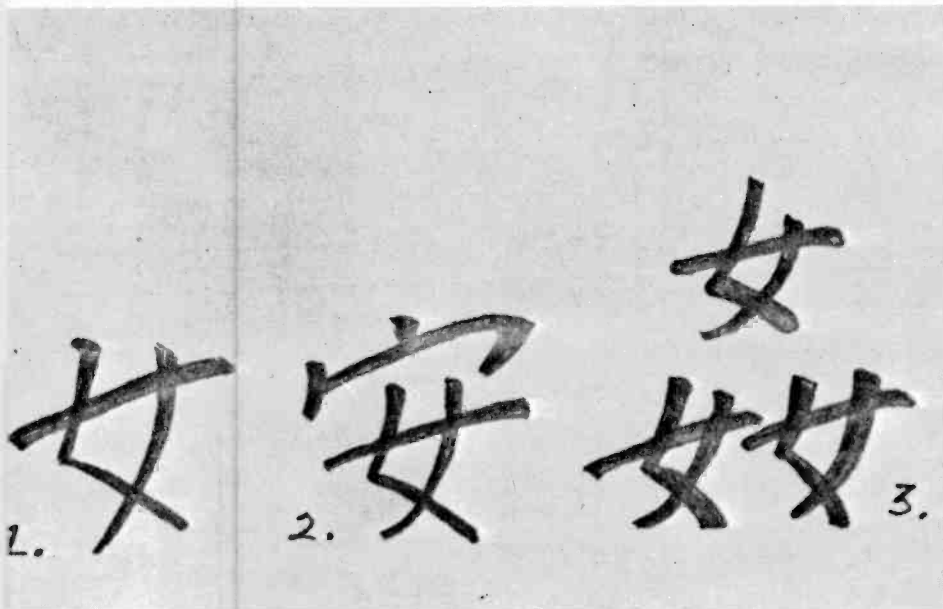 1. 女 2. 安 姦 3.